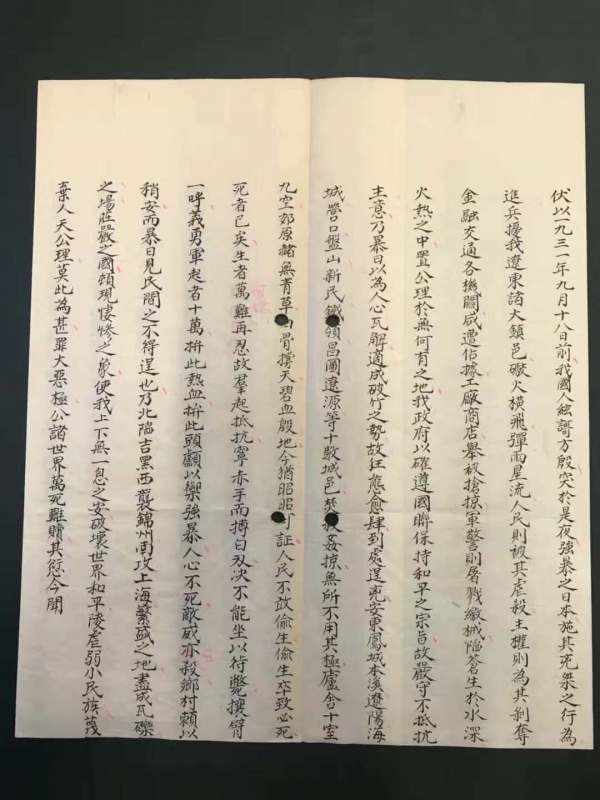 伏以一九三一年九月十八日前我國人絃謌方殷突於是夜強暴之日本施其兇桀之行為
進兵擾我遼東諸大鎮邑礮火橫飛彈雨星流人民則被其虐殺主權則為其剝奪
金融交通各機關咸遭佔據工廠商店舉被搶掠軍警則屠戮繳械陷蒼生於水深
火熱之中置公理於無何有之地我政府以確遵國聯保持和平之宗旨故嚴守不抵抗
主意乃暴日以為人心瓦解適成破竹之勢故狂態愈肆到處逞兇安東鳳城本溪遼陽海
城營口盤山新民鐵領昌圖遼源等十數城邑焚殺姦掠無所不用其極廬舍十室
九空郊原緒無青草白骨撐天碧血殷地今猶昭昭可証人民不敢偷生偷生卒致必死
死者已矣生者萬難再忍故羣起抵抗寧赤手而搏白刃決不能坐以待斃攘臂
一呼義勇軍起者十萬拚此熱血拚此頭顱以禦強暴人心不死敵威亦殺鄉村賴以
稍安而暴日見民間之不得逞也乃北陷吉黑西襲錦州南攻上海蘩盛之地盡成瓦礫
之場莊嚴之國頓現悽慘之象使我上下無一息之安破壞世界和平陵虐弱小民族蔑
棄人天公理莫此為甚罪大惡極公諸世界萬死難贖其愆今聞